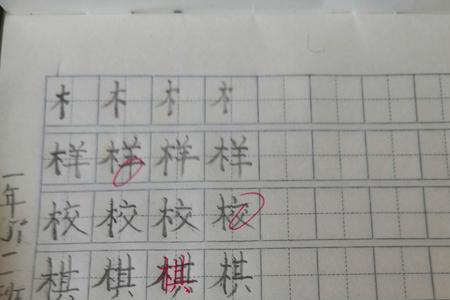 木 木 木 木
样 样 样 样
校 校 校 校
棋 棋 棋 棋
一年
二班